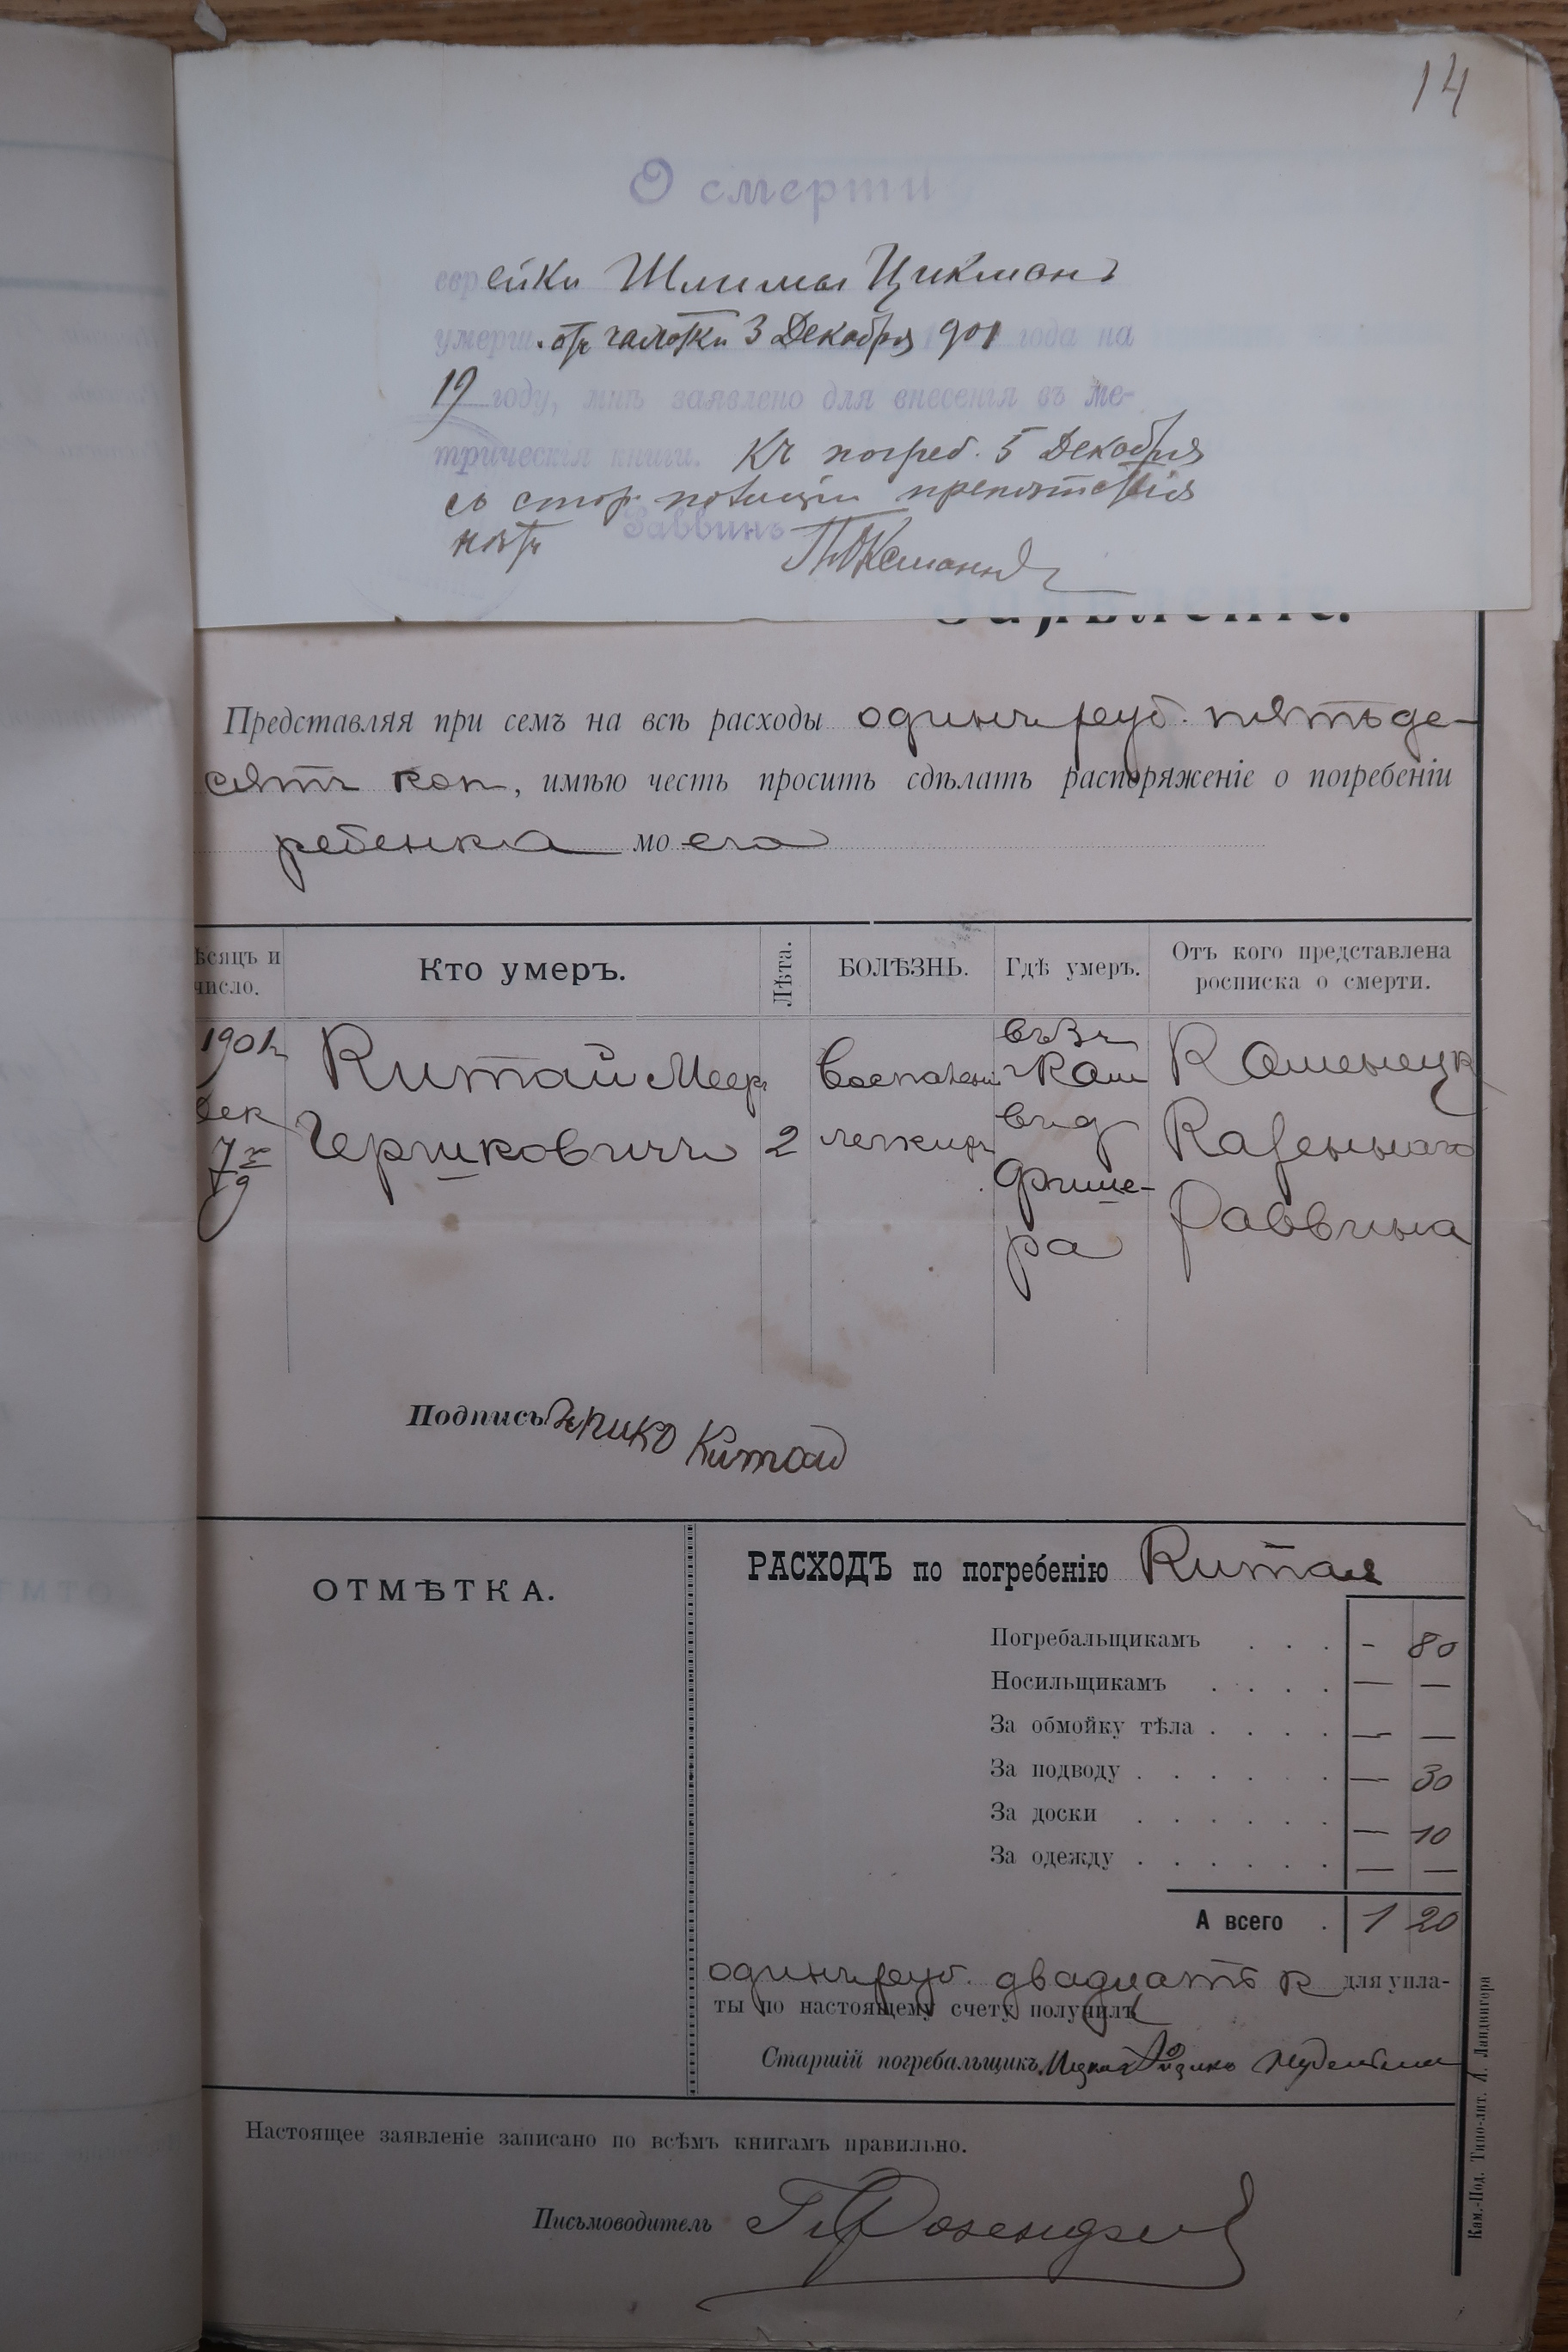 14
О смерти
еврейки Шлимы Цикманъ
умерш. отъ чахотки 3 Декабря 901 года на
19 году, мнѣ заявлено для внесенія въ ме-
трическія книги. Къ погреб. 5 Декабря
съ стор. полиціи препятствія
нѣтъ Раввинъ
Заявленіе.
Представляя при семъ на всѣ расходы одинъ руб. пятьде-
сятъ коп, имѣю честь просить сдѣлать распоряженіе о погребеніи
ребенка моего
ѣсяцъ и число. Кто умеръ. Лѣта. БОЛѢЗНЬ. Гдѣ умеръ. Отъ кого представлена росписка о смерти.
1901 Китай Меер Воспален Кам Каменецк
Дек Гершковичъ 2 легкихъ Казеннаго
7 г Фише- Раввина
ра
Подпись Китай
ОТМѢТКА.
РАСХОДЪ по погребенію Китая
Погребальщикамъ . . . - 80
Носильщикамъ . . . . — —
За обмойку тѣла . . . . — —
За подводу . . . . . . — 30
За доски . . . . . . — 10
За одежду . . . . . . — —
А всего . 1 20
одинъ руб. двадцать к для упла-
ты по настоящему счету получилъ
Старшій погребальщикъ
Настоящее заявленіе записано по всѣмъ книгамъ правильно.
Письмоводитель
Кам.-Под. Типо-лит. Л. Ландвигера